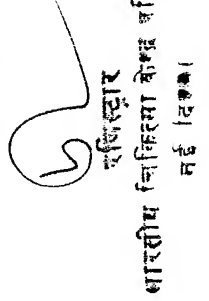 रजिस्ट्रार
भारतीय चिकित्सा
नई दिल्ली।